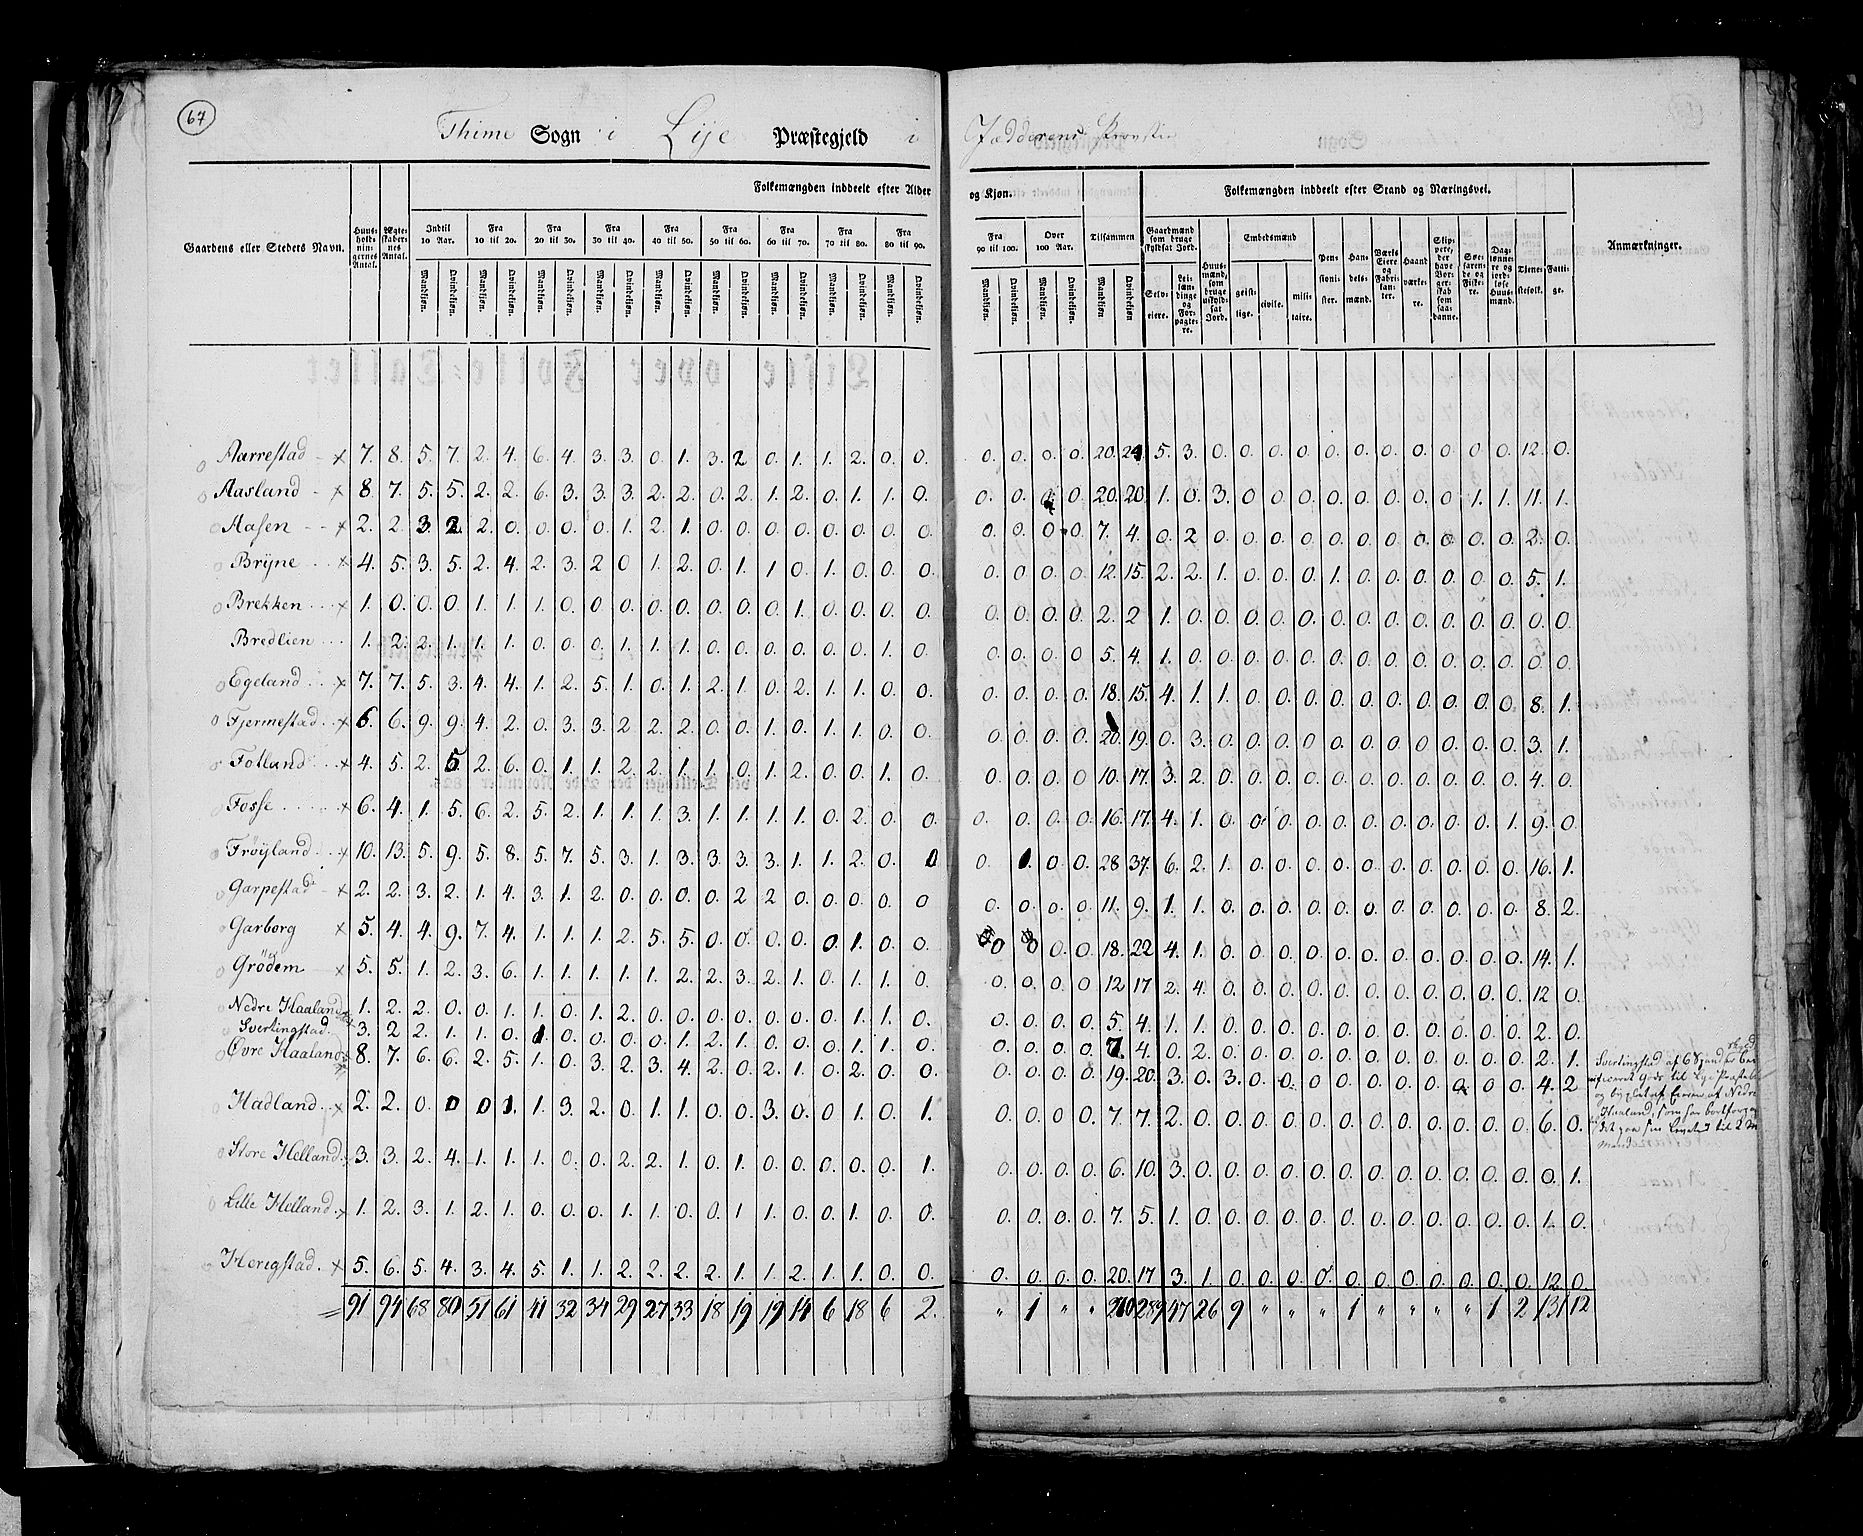 67
Thime Sogn i Lÿe Præstegjeld i Jædderens Provstie
Gaardens eller Steders Navn. Huusholdningernes Antal. Ægteskabernes Antal. Folkemængden inddeelt efter Alder og Kjøn. Tilsammen Folkemængden inddeelt efter Stand og Næringsvei. Anmærkninger.
Indtil 10 Aar. Fra 10 til 20. Fra 20 til 30. Fra 30 til 40. Fra 40 til 50. Fra 50 til 60. Fra 60 til 70. Fra 70 til 80. Fra 80 til 90. Fra 90 til 100. Over 100 Aar. Gaardmænd som bruge skyldsat Jord. Huusmænd, som bruge uskyldsat Jord. Embedsmænd Pensionister. Handelsmænd. Haandværkere. Tjenestefolk. Fattige.
Mandkjøn. Qvindekjøn. Mandkjøn. Qvindekjøn. Mandkjøn. Qvindekjøn. Mandkjøn. Qvindekjøn. Mandkjøn. Qvindekjøn. Mandkjøn. Qvindekjøn. Mandkjøn. Qvindekjøn. Mandkjøn. Qvindekjøn. Mandkjøn. Qvindekjøn. Mandkjøn. Qvindekjøn. Mandkjøn. Qvindekjøn. Mandkjøn Qvindekjøn Selveiere. Leilændinge og Forpagtere. geistlige. civile. militaire.
Aarrestad x 7. 8. 5. 7. 2. 4. 6. 4. 3. 3. 0. 1. 3. 2 0. 1. 1. 2. 0. 0. 0. 0. 0. 0. 20. 24 5. 3. 0. 0. 0. 0. 0. 0. 0. 0. 0. 0 0. 12. 0.
Aasland x 8. 7. 5. 5. 2. 2. 6. 3. 3. 3. 2. 2. 0. 2. 1. 2. 0. 1. 1. 0. 0. 0. 0 0. 20. 20. 1. 0. 3. 0 0. 0. 0. 0. 0. 0. 0. 1. 1. 11. 1.
Aasen x 2. 2. 3. 2. 2. 0. 0. 0. 0. 1. 2. 1. 0. 0. 0. 0. 0. 0. 0. 0. 0. 0. 0. 0. 7. 4. 0. 2 0. 0. 0. 0. 0. 0. 0. 0. 0. 0. 0. 2. 0.
Brÿne x 4. 5. 3. 5. 2. 4. 2. 3. 2 0 1. 2. 0. 1. 1 0. 1. 0. 0. 0. 0. 0. 0. 0. 12. 15. 2. 2. 1. 0. 0. 0. 1. 0. 0. 0. 0. 0. 0. 5. 1.
Brekken x 1. 0. 0. 0. 1. 1. 1. 0. 0. 0. 0. 0. 0. 0. 0. 1. 0. 0. 0. 0. 0. 0. 0. 0. 2. 2 1. 0. 0. 0. 0. 0. 0. 0. 0. 0. 0. 0. 0. 0. 0.
Bredlien 1. 2. 2. 1. 1. 1. 0. 0. 0. 1. 1. 1. 0. 0. 0. 0. 0. 0. 1. 0. 0. 0. 0. 0 5. 4. 1. 0. 0. 0. 0. 0. 0. 0. 0. 0. 0. 0. 0. 0. 0.
Egeland x 7. 7. 5. 3. 4. 4. 1. 2. 5. 1. 0. 1. 2. 1. 0. 2. 1. 1. 0. 0. 0. 0. 0. 0. 18. 15. 4. 1. 1. 0. 0. 0. 0. 0. 0. 0. 0. 0. 0. 8. 1.
Fjermestad x 6. 6. 9. 9. 4. 2. 0. 3. 3. 2 2. 2. 0. 0. 1. 0. 1. 1. 0. 0. 0. 0. 0. 0. 20. 19. 0. 3. 0. 0. 0. 0. 0. 0. 0. 0. 0. 0. 0. 3. 1.
Fotland x 4. 5. 2. 5 2. 6. 0. 1. 1. 2. 2. 1. 1. 0. 1. 2. 0. 0. 1. 0. 0. 0. 0. 0 10. 17. 3. 2. 0. 0. 0. 0. 0. 0. 0. 0. 0. 0. 0. 4. 0.
Fosse x 6. 4. 1. 5. 6. 2. 5. 2. 1. 1. 1. 3. 1. 1. 1. 1. 0. 2. 0. 0. 0. 0. 0. 0. 16. 17. 4. 1. 0. 0. 0. 0. 0. 0. 0. 0. 0. 0. 1. 9. 0.
Frøÿland x 10. 13. 5. 9. 5. 8. 5. 7. 5. 3. 1. 3. 3. 3. 3. 1. 1. 2. 0. 0 0. 1. 0. 0. 28 37. 6. 2. 1. 0. 0. 0. 0. 0. 0. 0. 0. 0. 0. 16. 1.
Garpestad x 2. 2. 3. 2. 1. 4. 3. 1. 2. 0. 0. 0. 0. 2 2 0. 0. 0. 0. 0 0. 0. 0. 0. 11. 9. 1. 1. 0. 0. 0. 0. 0. 0. 0. 0. 0. 0. 0. 8. 2.
Garborg x 5. 4. 4. 9. 7. 4. 1. 1. 1. 2. 5. 5. 0. 0. 0. 0. 0. 1. 0. 0. 0 0 0. 0. 18. 22 4. 1. 0. 0. 0. 0. 0. 0. 0. 0. 0. 0. 0. 14. 1.
Grödem x 5. 5. 1. 2. 3. 6. 1. 1. 1. 1. 1. 2. 2. 3. 2. 1. 0. 1. 1. 0. 0. 0. 0. 0 12 17 2. 4. 0. 0. 0. 0. 0. 0. 0. 0. 0. 0. 0. 12 0.
Nedre Haaland 1. 2. 2. 0. 0. 1. 1. 0. 1. 2. 0. 0. 0. 0. 0. 0. 0. 1. 1. 0. 0. 0. 0. 0. 5. 4. 1. 1. 0. 0. 0. 0. 0. 0. 0. 0. 0. 0. 0. 2. 0.
Svertingstad 3. 2 2. 1. 1. 0. 1 0. 0. 0. 0. 1. 2. 1. 0. 0. 0. 1. 1. 0. 0. 0. 0. 0. 7. 4. 0. 2. 0. 0. 0. 0. 0. 0. 0. 0. 0. 0. 0. 2. 1.
Øvre Haaland 8. 7. 6. 6. 2. 5. 1. 0. 3. 2. 3. 4. 2. 0. 2. 1. 0. 2. 0. 0. 0. 0. 0. 0. 19. 20 3. 0. 3. 0. 0. 0. 0. 0. 0. 0. 0. 0. 0. 4. 2
Svertingstad af 6 Spand
Haaland, som har
Hadland x 2. 2. 0. 0 0 1. 1. 3. 2. 0. 1. 1. 0. 0. 3. 0. 0 1. 0. 1. 0. 0. 0. 0. 7. 7. 2. 0. 0. 0. 0. 0. 0. 0. 0. 0. 0. 0. 0. 6. 0.
Store Helland 3. 3. 2. 4. 1. 1. 1. 0. 0. 2 2. 1. 0. 1. 0. 0. 0. 0. 0. 1. 0. 0. 0. 0. 6. 10. 3. 0. 0. 0. 0. 0. 0. 0. 0. 0. 0. 0. 0. 0. 1.
Lille Helland 1. 2. 3. 1. 2. 1. 0. 0. 0. 1. 1. 0. 0. 1 1. 0. 0. 1. 0. 0. 0. 0. 0. 0. 7. 5. 1. 0. 0. 0. 0. 0. 0. 0. 0. 0. 0. 0. 0. 1. 0.
Herigstad x 5. 6. 5. 4. 3. 4. 5. 1. 1. 2. 2. 2. 2. 1. 1. 2. 1. 1. 0. 0. 0. 0. 0. 0. 20. 17 3. 1. 0. 0. 0. 0. 0. 0. 0. 0. 0. 0. 0. 12. 0.
= 91 94 68 80 51 61 41 32 34 29 27 33 18 19 19 14 6 18 6 2. " 1 " " 289 47 26 9 " " " 1 " " " " 1 2 131 12